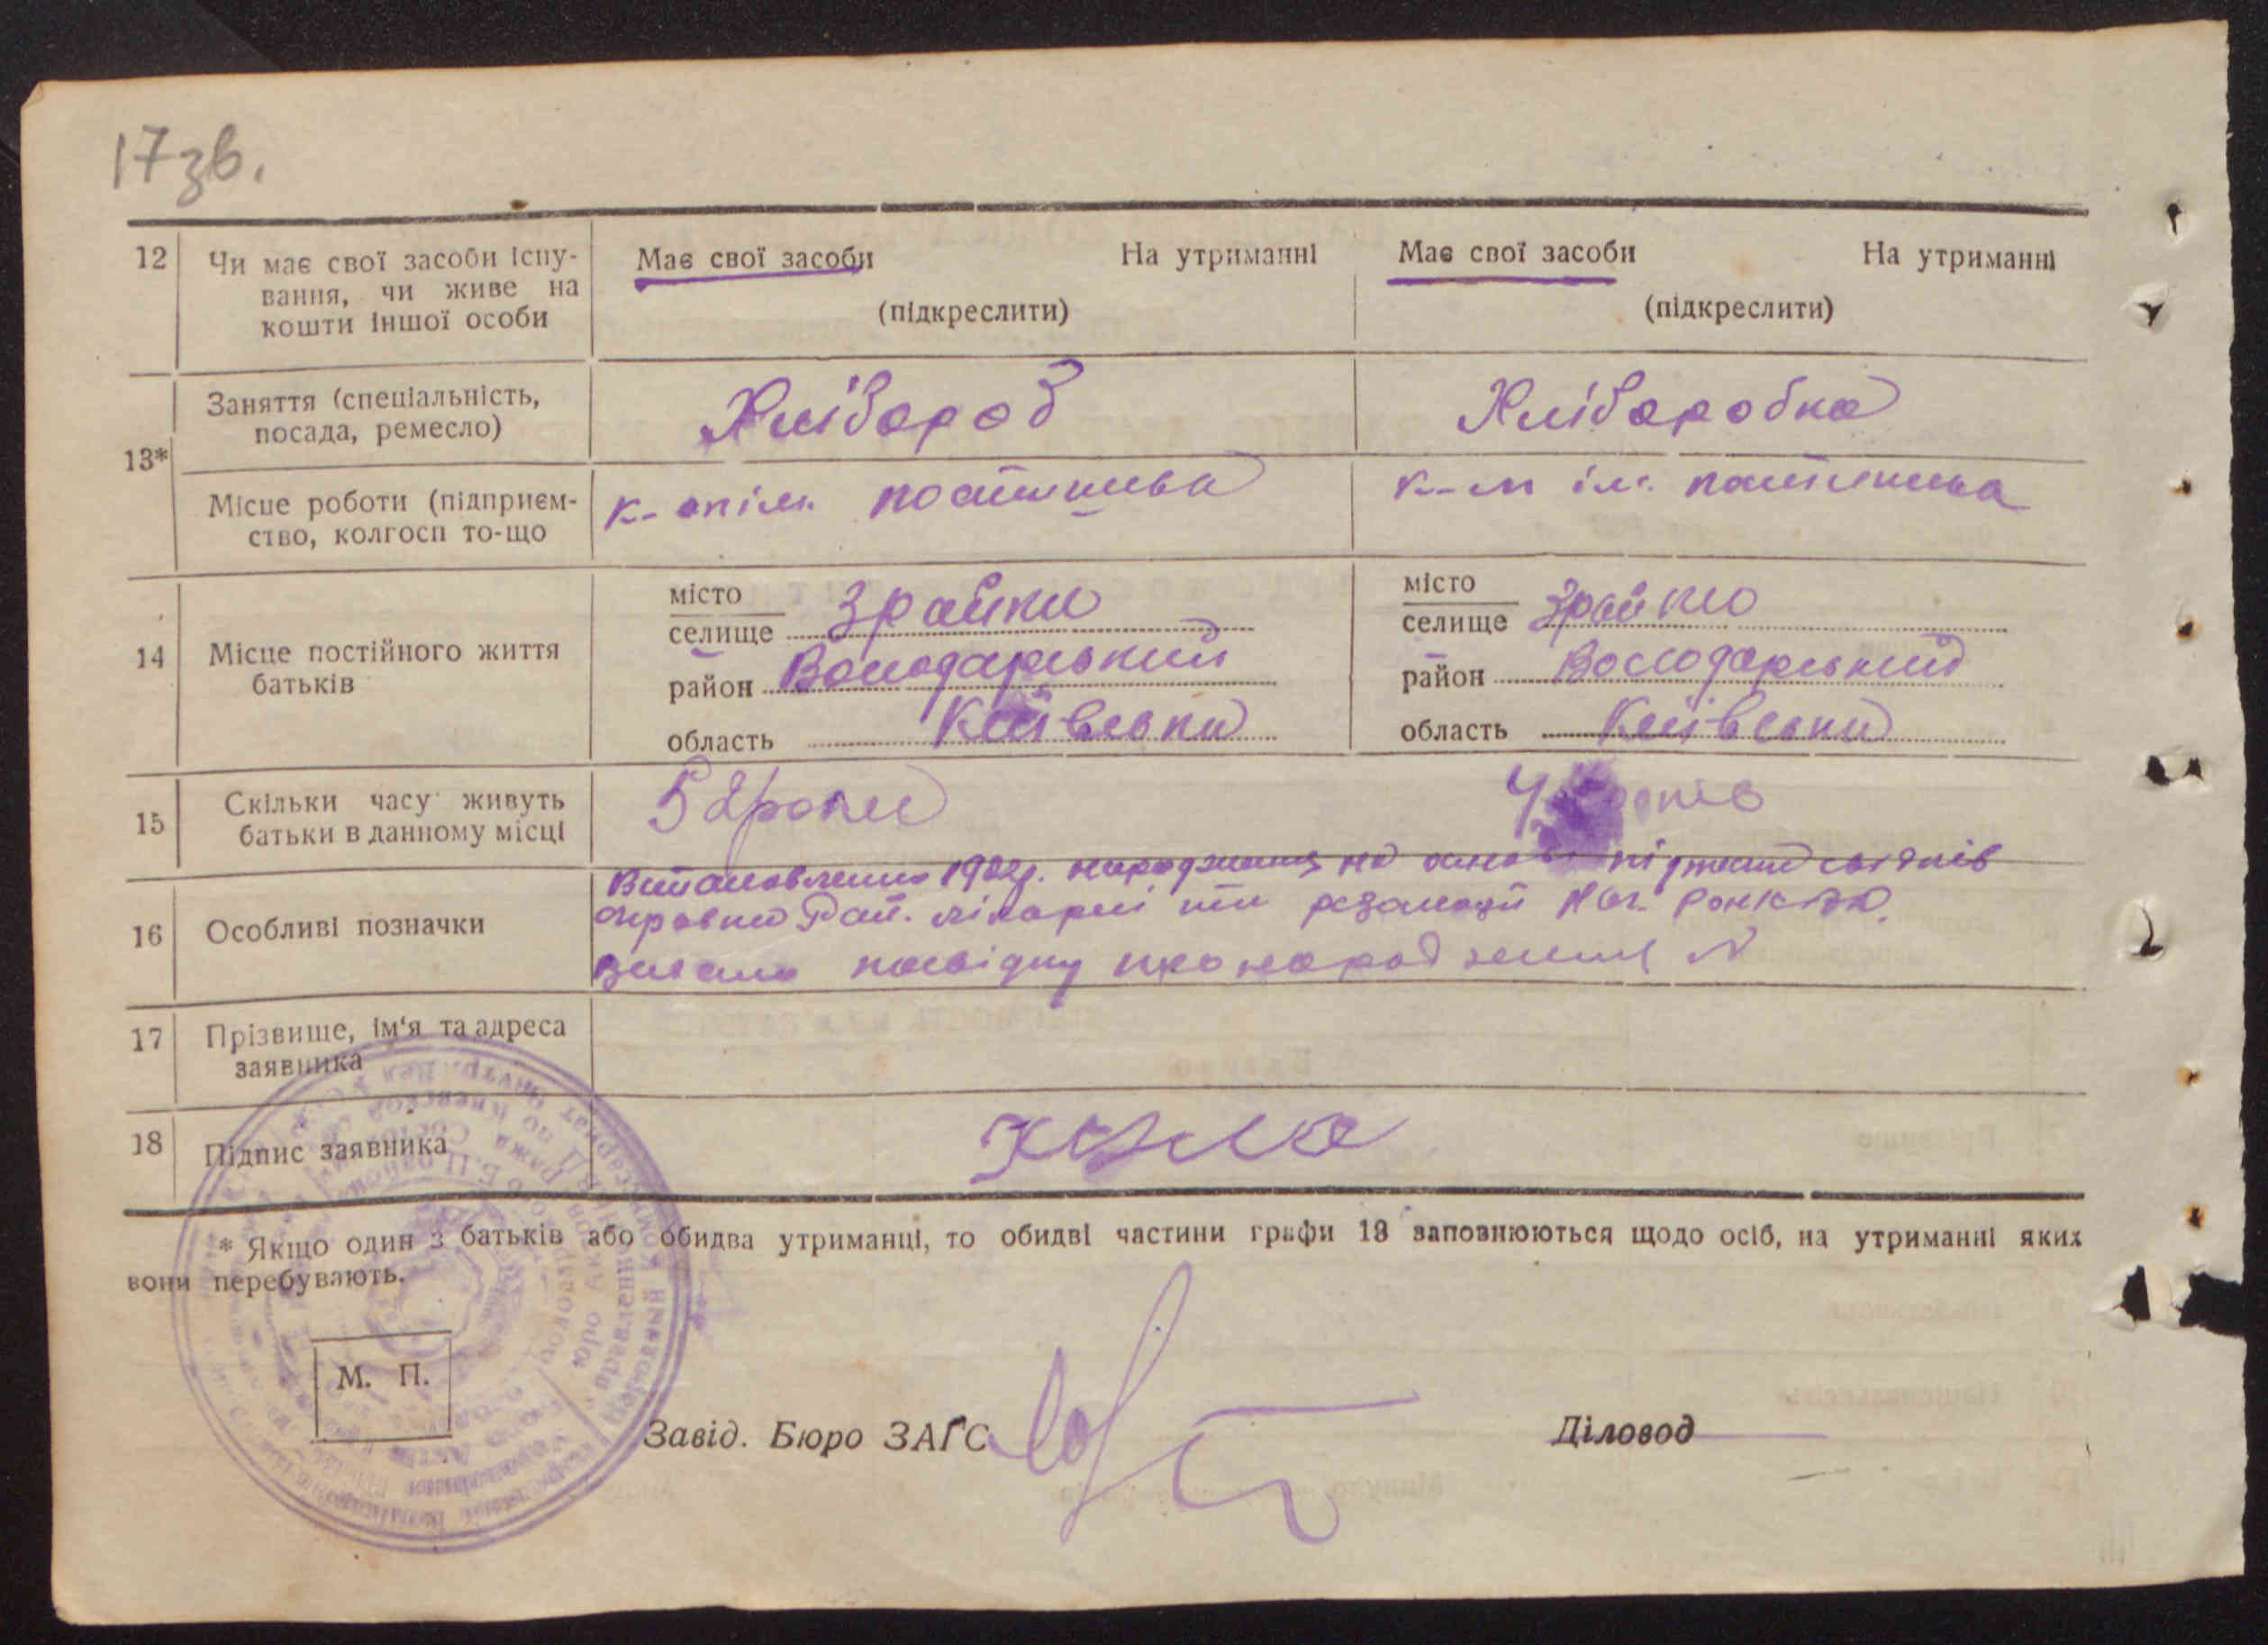 17зв.
12 Чи має свої засоби існу-
вання, чи живе на
кошти іншої особи
Має свої засоби На утриманні
(підкреслити)
Має свої засоби На утриманні
(підкреслити)
13*
Заняття (спеціальність,
посада, ремесло)
Хлібороб
Хліборобка
Місце роботи (підприєм-
ство, колгосп то-що
к-т ім. постишева
к-т ім. постишева
14 Місце постійного життя
батьків
місто
селище Зрайки
район Володарський
область Київська
місто
селище Зрайки
район Володарський
область Київська
15 Скільки часу живуть
батьки в данному місці
16 Особливі позначки
Встановлено 1922р. народження на
справки Рай. лікарні та резолюції Нач.
видано посвідку про народження №
17 Прізвище, ім'я та адреса
заявника
18 Підпис заявника
* Якщо один з батьків або обидва утриманці, то обидві частини графи 13 заповнюються щодо осіб, на утриманні яких
вони перебувають.
М. П.
Завід. Бюро ЗАГС
Діловод